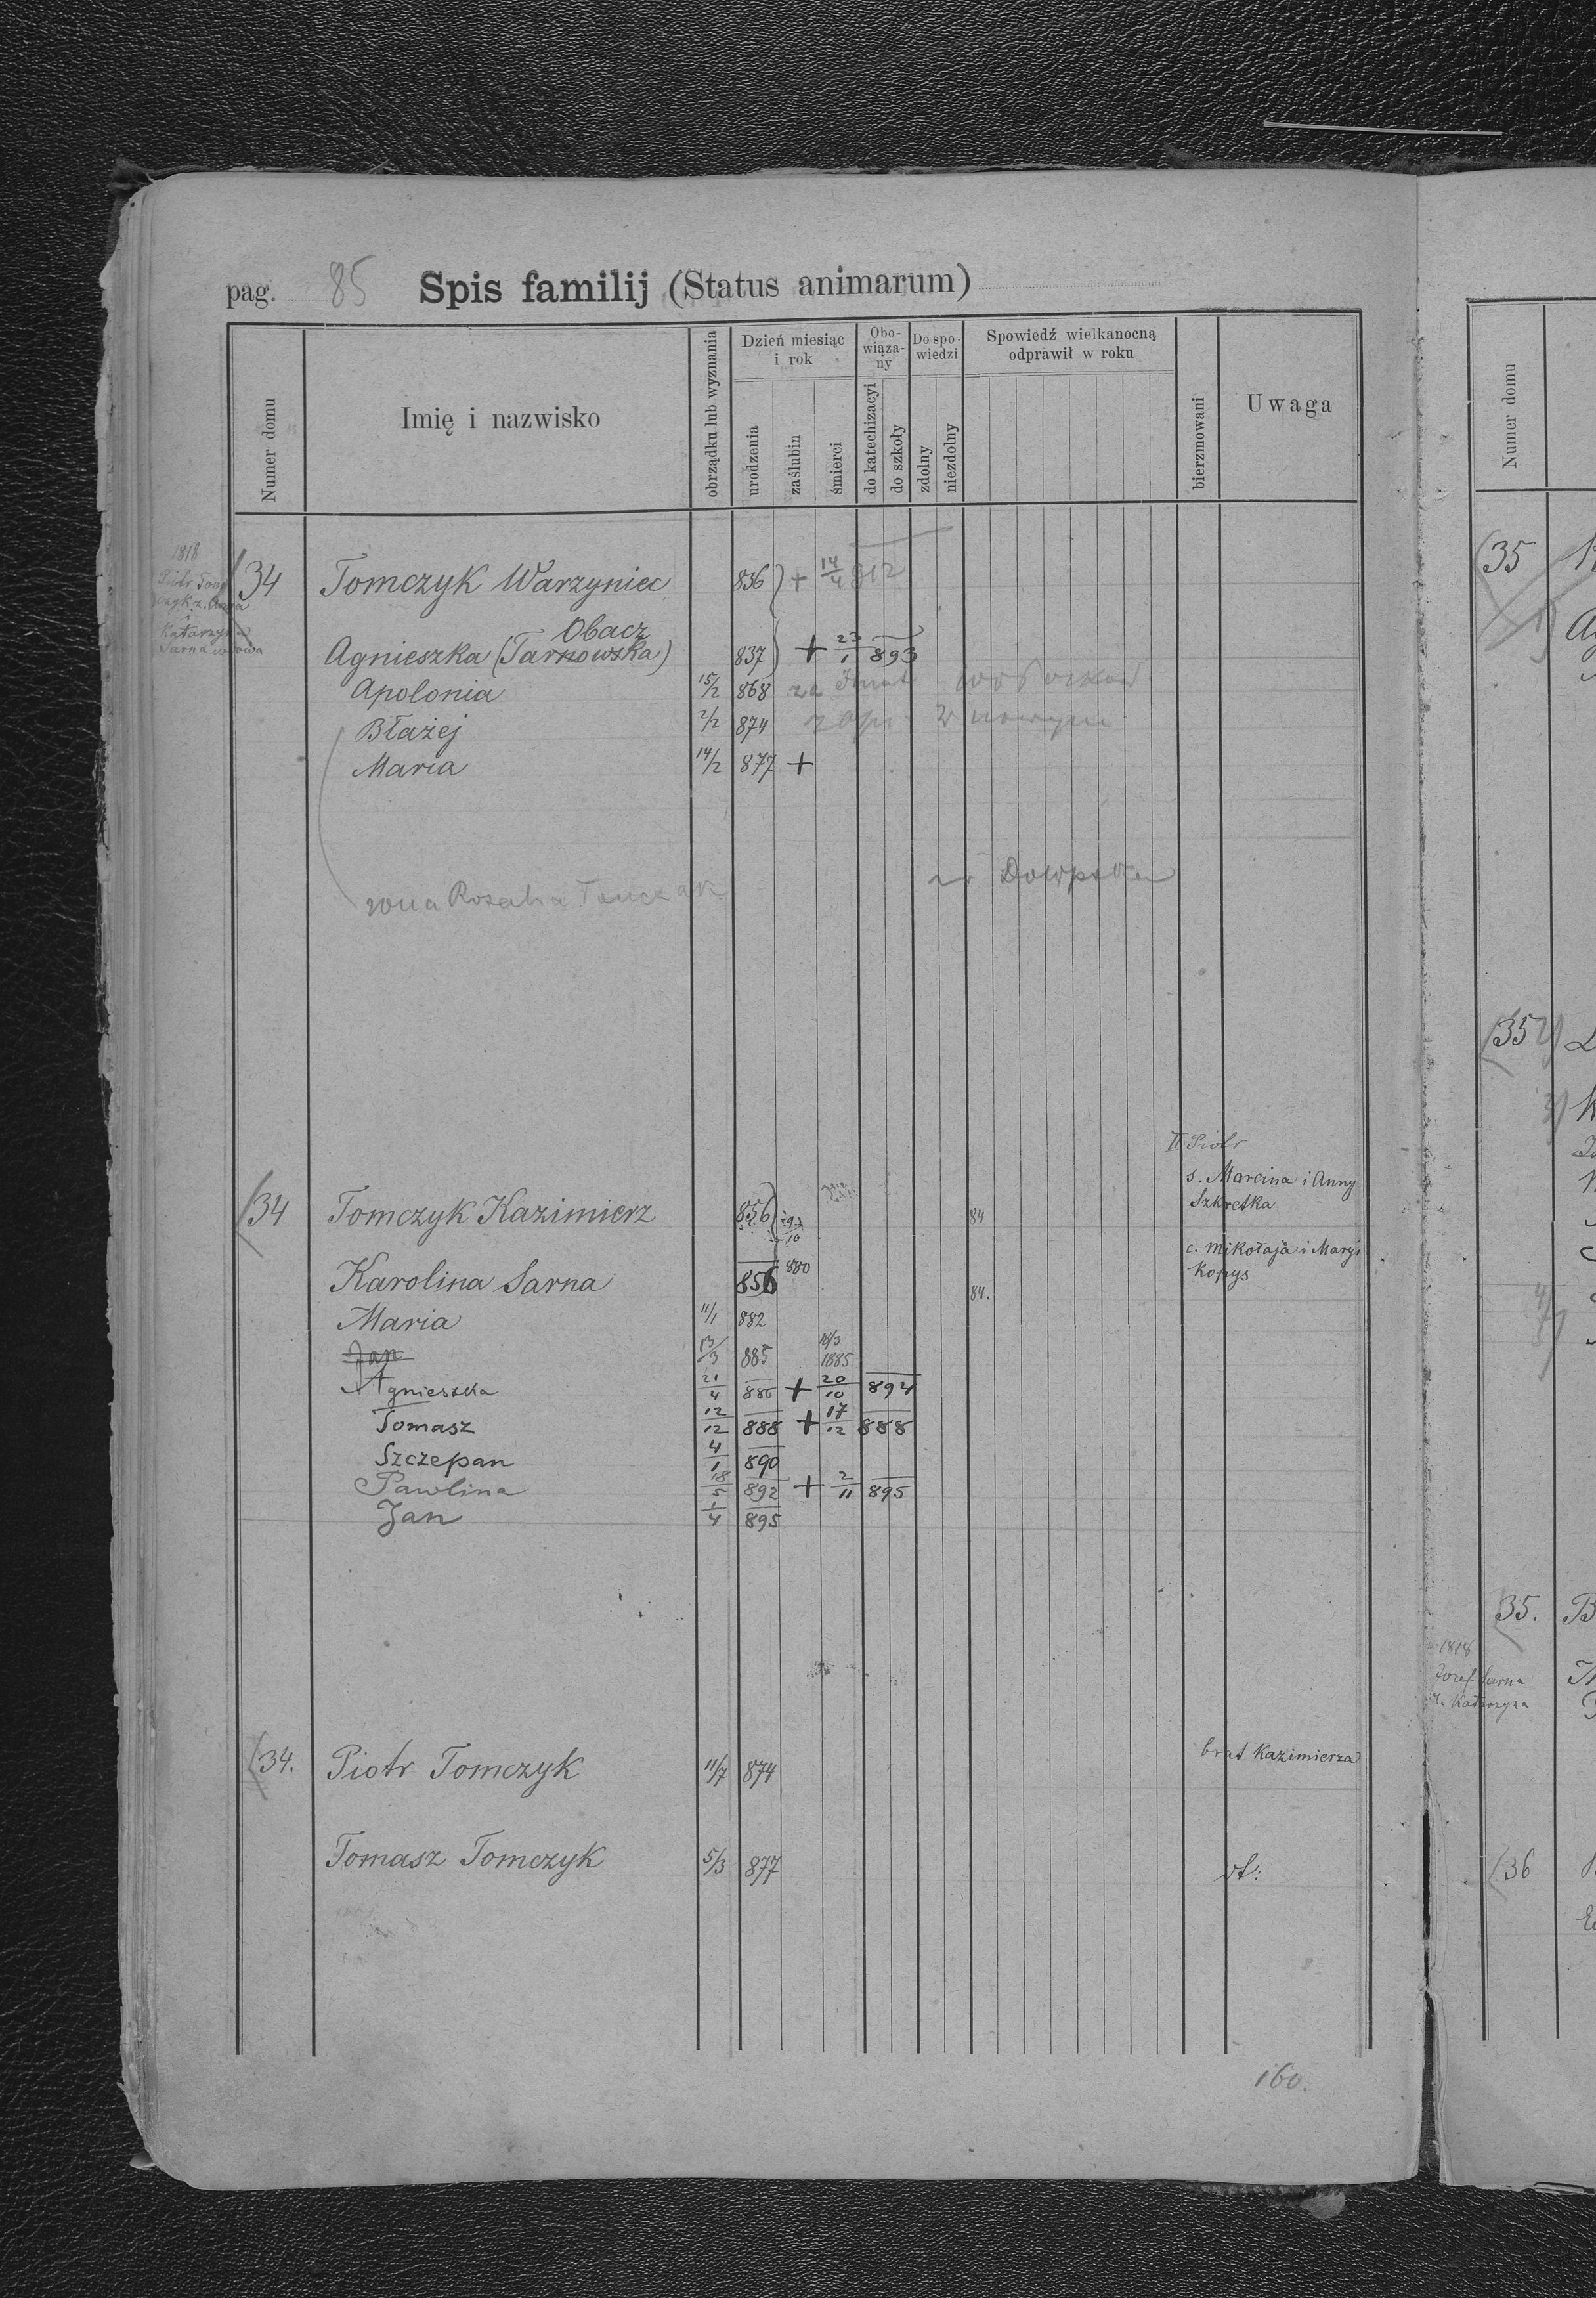 pag. 85 Spis familij (Status animarum)
Numer domu
Imię i nazwisko
obrządku lub wyznania
Dzień miesiąc i rok
urodzenia
zaślubin
śmierci
Obowiąza-ny
do katechizacyi
do szkoły
Do spo-wiedzi
zdolny
niezdolny
Spowiedź wielkanocną odprawił w roku
bierzmowani
Uwaga
1818
Piotr Tom
czyk z. Anna
i
Katarzyna
Sarna wdowa
34 Tomczyk Warzyniec 836 + 14/4 812
Obacz
Agnieszka (Tarnowska) 837 + 23/1 893
Apolonia 15/2 868 za
Błażej 2/2 874 w nowym
Maria 14/2 877 +
żona Rozalia
II Piotr
s. Marcina i Anny
Szkretka
34 Tomczyk Kazimierz 856 84
10
880
c. Mikołaja i Maryi
Kopys
Karolina Sarna 856 84.
Maria 11/1 882
Jan 13/3 885 18/3 1885
Agnieszka 21/4 886 + 20/10 894
Tomasz 12/12 888 + 17/12 888
Szczepan 4/1 890
Pawlina 18/5 892 + 2/11 895
Jan 1/4 895
34. Piotr Tomczyk 11/7 874 brat Kazimierza
Tomasz Tomczyk 5/3 877 vt:
160.
Numer domu
35
35 2)
3)
35. B
1818
Józef Sarna
ż. Katarzyna
36